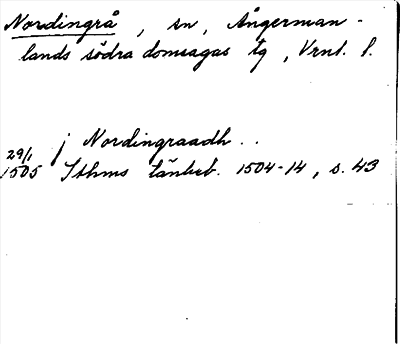 Nordingrå, sn, Ångerman-
lands södra domsagas tg, Vrnl. l.
j Nordingraadh..
29/1
1505 Sthms tänkeb. 1504-14, s. 43